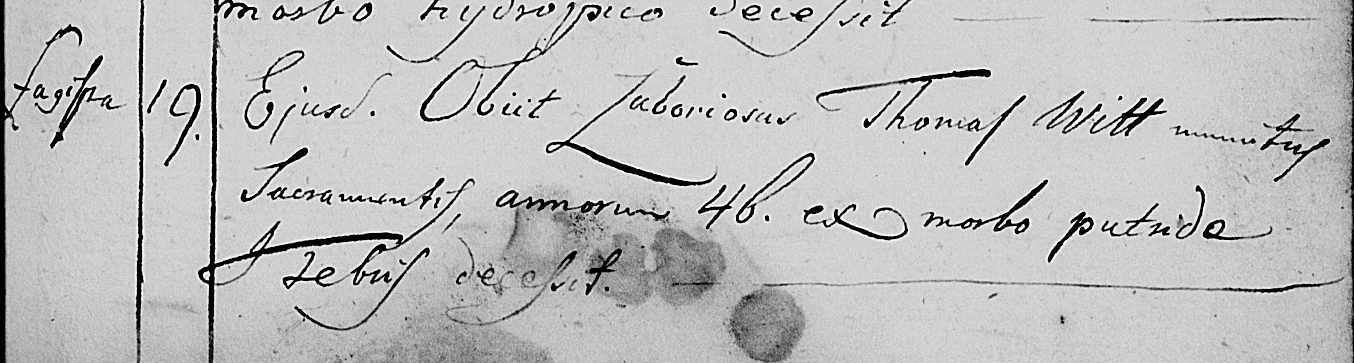 morbo hydropico decessit
Łagissa 19. Ejusd. Obiit Laboriosus Thomas Witt munitus
Sacramentis, annorum 46. ex morbo putrida
Febris decessit.